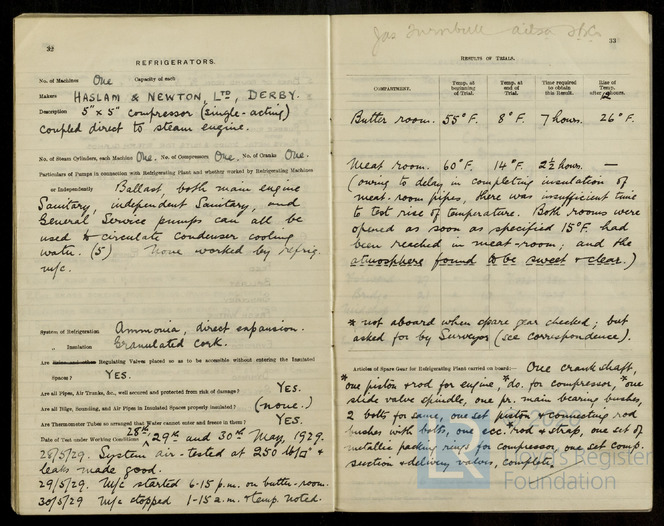 32
REFRIGERATORS.
No. of Machines One Capacity of each
Makers HASLAM & NEWTON, LTD, DERBY.
Description 5" x 5" compressor (single-acting)
coupled direct to steam engine.
No. of Steam Cylinders, each Machine One. No. of Compressors One. No. of Cranks One.
Particulars of Pumps in connection with Refrigerating Plant and whether worked by Refrigerating Machines
or Independently Ballast, both main engine
Sanitary, independent Sanitary, and
General Service pumps can all be
used to circulate condenser cooling
water. (5) None worked by refrig.
m/c.
System of Refrigeration Ammonia, direct expansion.
" Insulation Granulated cork.
Are Regulating Valves placed so as to be accessible without entering the Insulated
Spaces? YES.
Are all Pipes, Air Trunks, &c., well secured and protected from risk of damage? YES.
Are all Bilge, Sounding, and Air Pipes in Insulated Spaces properly insulated? (none.)
Are Thermometer Tubes so arranged that Water cannot enter and freeze in them? YES.
Date of Test under Working Conditions 28th, 29th and 30th May, 1929.
28/5/29. System air-tested at 250 lb/□" &
leaks made good.
29/5/29. M/c started 6-15 p.m. on butter-room.
30/5/29 M/c stopped 1-15 a.m. & temp. noted.
Jas Turnbull ailsa
33
RESULTS OF TRIALS.
COMPARTMENT. Temp. at beginning of Trial. Temp. at end of Trial. Time required to obtain this Result. Rise of Temp. after 12 hours.
Butter room. 55°F. 8°F. 7 hours. 26°F.
Meat room. 60°F. 14°F. 2½ hours. —
(owing to delay in completing insulation of
meat-room pipes, there was insufficient time
to test rise of temperature. Both rooms were
opened as soon as specified 15°F. had
been reached in meat-room; and the
atmosphere found to be sweet & clear.)
* not aboard when spare gear checked; but
asked for by Surveyor (see correspondence).
Articles of Spare Gear for Refrigerating Plant carried on board:— One crank shaft,
*one piston & rod for engine, *do. for compressor, *one
slide valve spindle, one pr. main bearing bushes,
2 bolts for same, one set piston & connecting rod
bushes with bolts, one ecc. *rod & strap, one set of
metallic packing rings for compressor, one set comp.
suction & delivery valves, complete.
Lloyd's Register
Foundation